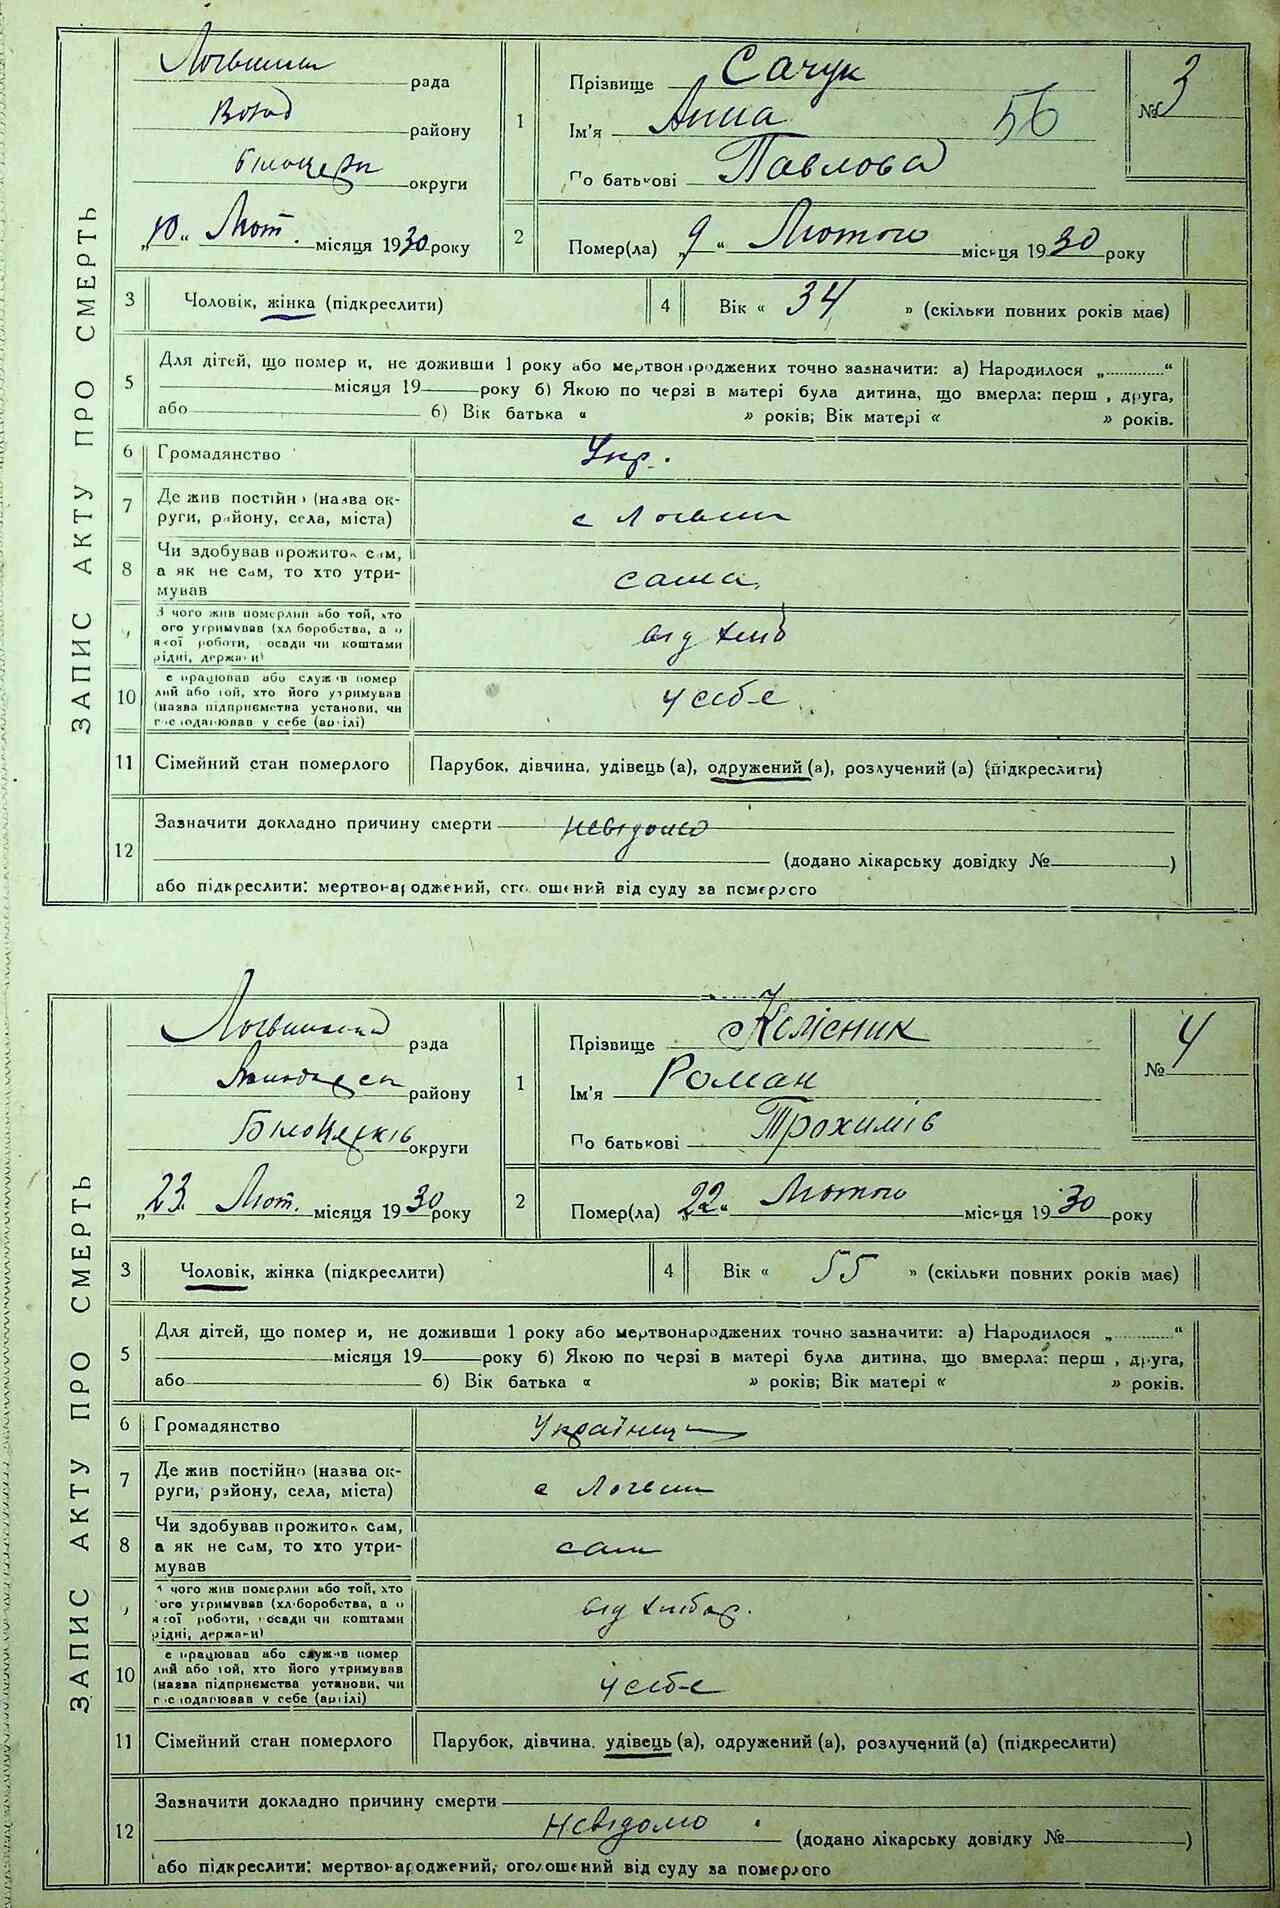 ЗАПИС АКТУ ПРО СМЕРТЬ
рада
району
округи
„10“ Лют. місяця 1930 року
1
Прізвище Сачук
Ім'я Анна 56
По батькові Павлова
№ 3
2
Помер(ла) „9“ Лютого місяця 1930 року
3 Чоловік, жінка (підкреслити)
4 Вік « 34 » (скільки повних років має)
5 Для дітей, що помер и, не доживши 1 року або мертвонароджених точно зазначити: а) Народилося „............“
місяця 19 року б) Якою по черзі в матері була дитина, що вмерла: перш , друга,
або 6) Вік батька « » років; Вік матері « » років.
6 Громадянство Укр.
7 Де жив постійно (назва ок-
руги, району, села, міста)
8 Чи здобував прожиток сам,
а як не сам, то хто утри-
мував
сама
9 З чого жив померлий або той, хто
його утримував (хліборобства, а о
якої роботи, посади чи коштами
рідні, держави)
від
10 е працював або служив помер
лий або той, хто його утримував
(назва підприємства установи, чи
господарював у себе (вдомі)
у себе
11 Сімейний стан померлого Парубок, дівчина, удівець (а), одружений (а), розлучений (а) (підкреслити)
12 Зазначити докладно причину смерти невідомо
(додано лікарську довідку № )
або підкреслити: мертвонароджений, оголошений від суду за померлого
ЗАПИС АКТУ ПРО СМЕРТЬ
рада
району
Білоцерків округи
„23“ Лют. місяця 1930 року
1
Прізвище Колісник
Ім'я Роман
По батькові Трохимів
№ 4
2
Помер(ла) „22“ Лютого місяця 1930 року
3 Чоловік, жінка (підкреслити)
4 Вік « 55 » (скільки повних років має)
5 Для дітей, що помер и, не доживши 1 року або мертвонароджених точно зазначити: а) Народилося „............“
місяця 19 року б) Якою по черзі в матері була дитина, що вмерла: перш , друга,
або 6) Вік батька « » років; Вік матері « » років.
6 Громадянство
7 Де жив постійно (назва ок-
руги, району, села, міста)
8 Чи здобував прожиток сам,
а як не сам, то хто утри-
мував
сам
9 З чого жив померлий або той, хто
його утримував (хліборобства, а о
якої роботи, посади чи коштами
рідні, держави)
від
10 е працював або служив помер
лий або той, хто його утримував
(назва підприємства установи, чи
господарював у себе (вдомі)
у себе
11 Сімейний стан померлого Парубок, дівчина, удівець (а), одружений (а), розлучений (а) (підкреслити)
12 Зазначити докладно причину смерти
невідомо (додано лікарську довідку № )
або підкреслити: мертвонароджений, оголошений від суду за померлого